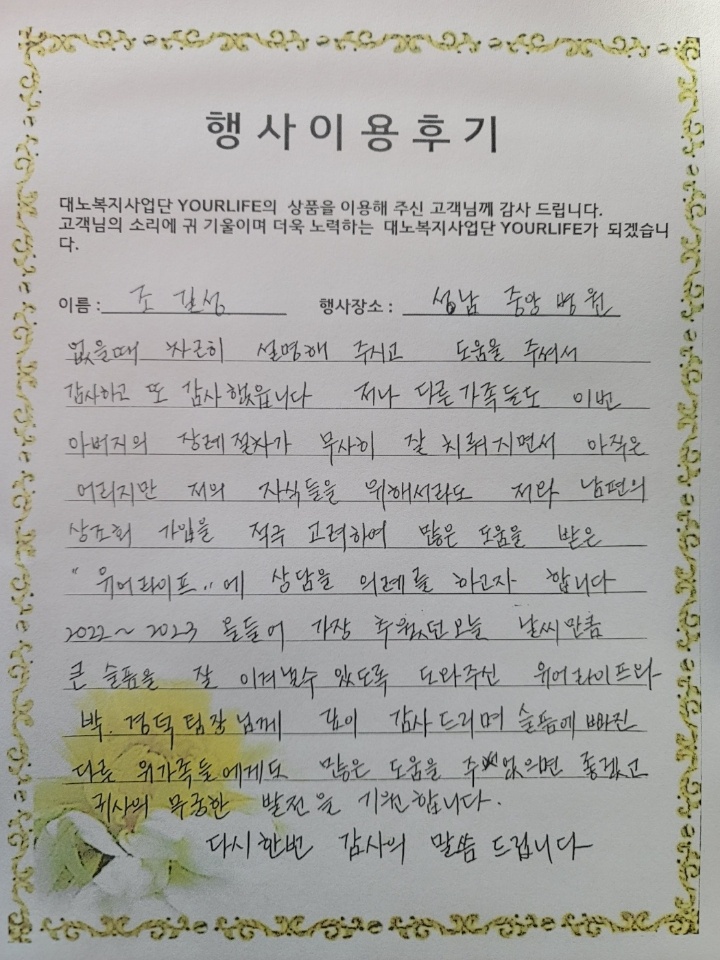 행사이용후기
대노복지사업단 YOURLIFE의 상품을 이용해 주신 고객님께 감사 드립니다.
고객님의 소리에 귀 기울이며 더욱 노력하는 대노복지사업단 YOURLIFE가 되겠습니
다.
이름 : 조 길성 행사장소 : 성남 중앙 병원
없을때 차근히 설명해 주시고 도움을 주셔서
감사하고 또 감사했읍니다 저나 다른가족들도 이번
아버지의 장례절차가 무사히 잘 치뤄지면서 아직은
어리지만 저의 자식들을 위해서라도 저와 남편의
상조회 가입을 적극 고려하여 많은 도움을 받은
"유어라이프"에 상담을 의례를 하고자 합니다
2022~2023 올들어 가장 추웠던오늘 날씨만큼
큰 슬픔을 잘 이겨낼수 있도록 도와주신 유어라이프와
박.경덕팀장님께 깊이 감사드리며 슬픔에빠진
다른 유가족들에게도 많은 도움을 주셨으면 좋겠고
귀사의 무궁한 발전을 기원합니다.
다시한번 감사의 말씀 드립니다